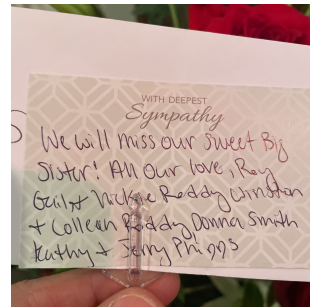 WITH DEEPEST
Sympathy
We will miss our Sweet Big
Sister! All our love, Ray
Gail + Nickie Reddy Winston
+ Colleen Reddy, Donna Smith
Kathy + Jerry Phipps